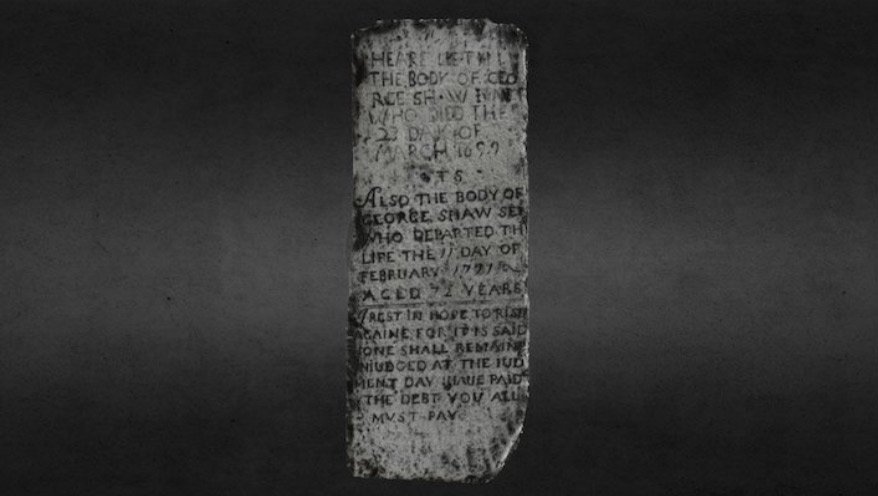 HEARE LIETH
THE BODY OF GEO
RGE SHAW IUN
WHO DIED THE
23 DAY OF
MARCH 1699
ALSO THE BODY OF
GEORGE SHAW SE
WHO DEPARTED TH
LIFE THE 11 DAY OF
FEBRUARY
AGED 72 YEARS
I REST IN HOPE TO RISE
AGAINE FOR IT IS SAID
NONE SHALL REMAINE
NIUDGED AT THE IUD
MENT DAY I HAUE PAID
THE DEBT YOU ALL
MUST PAY